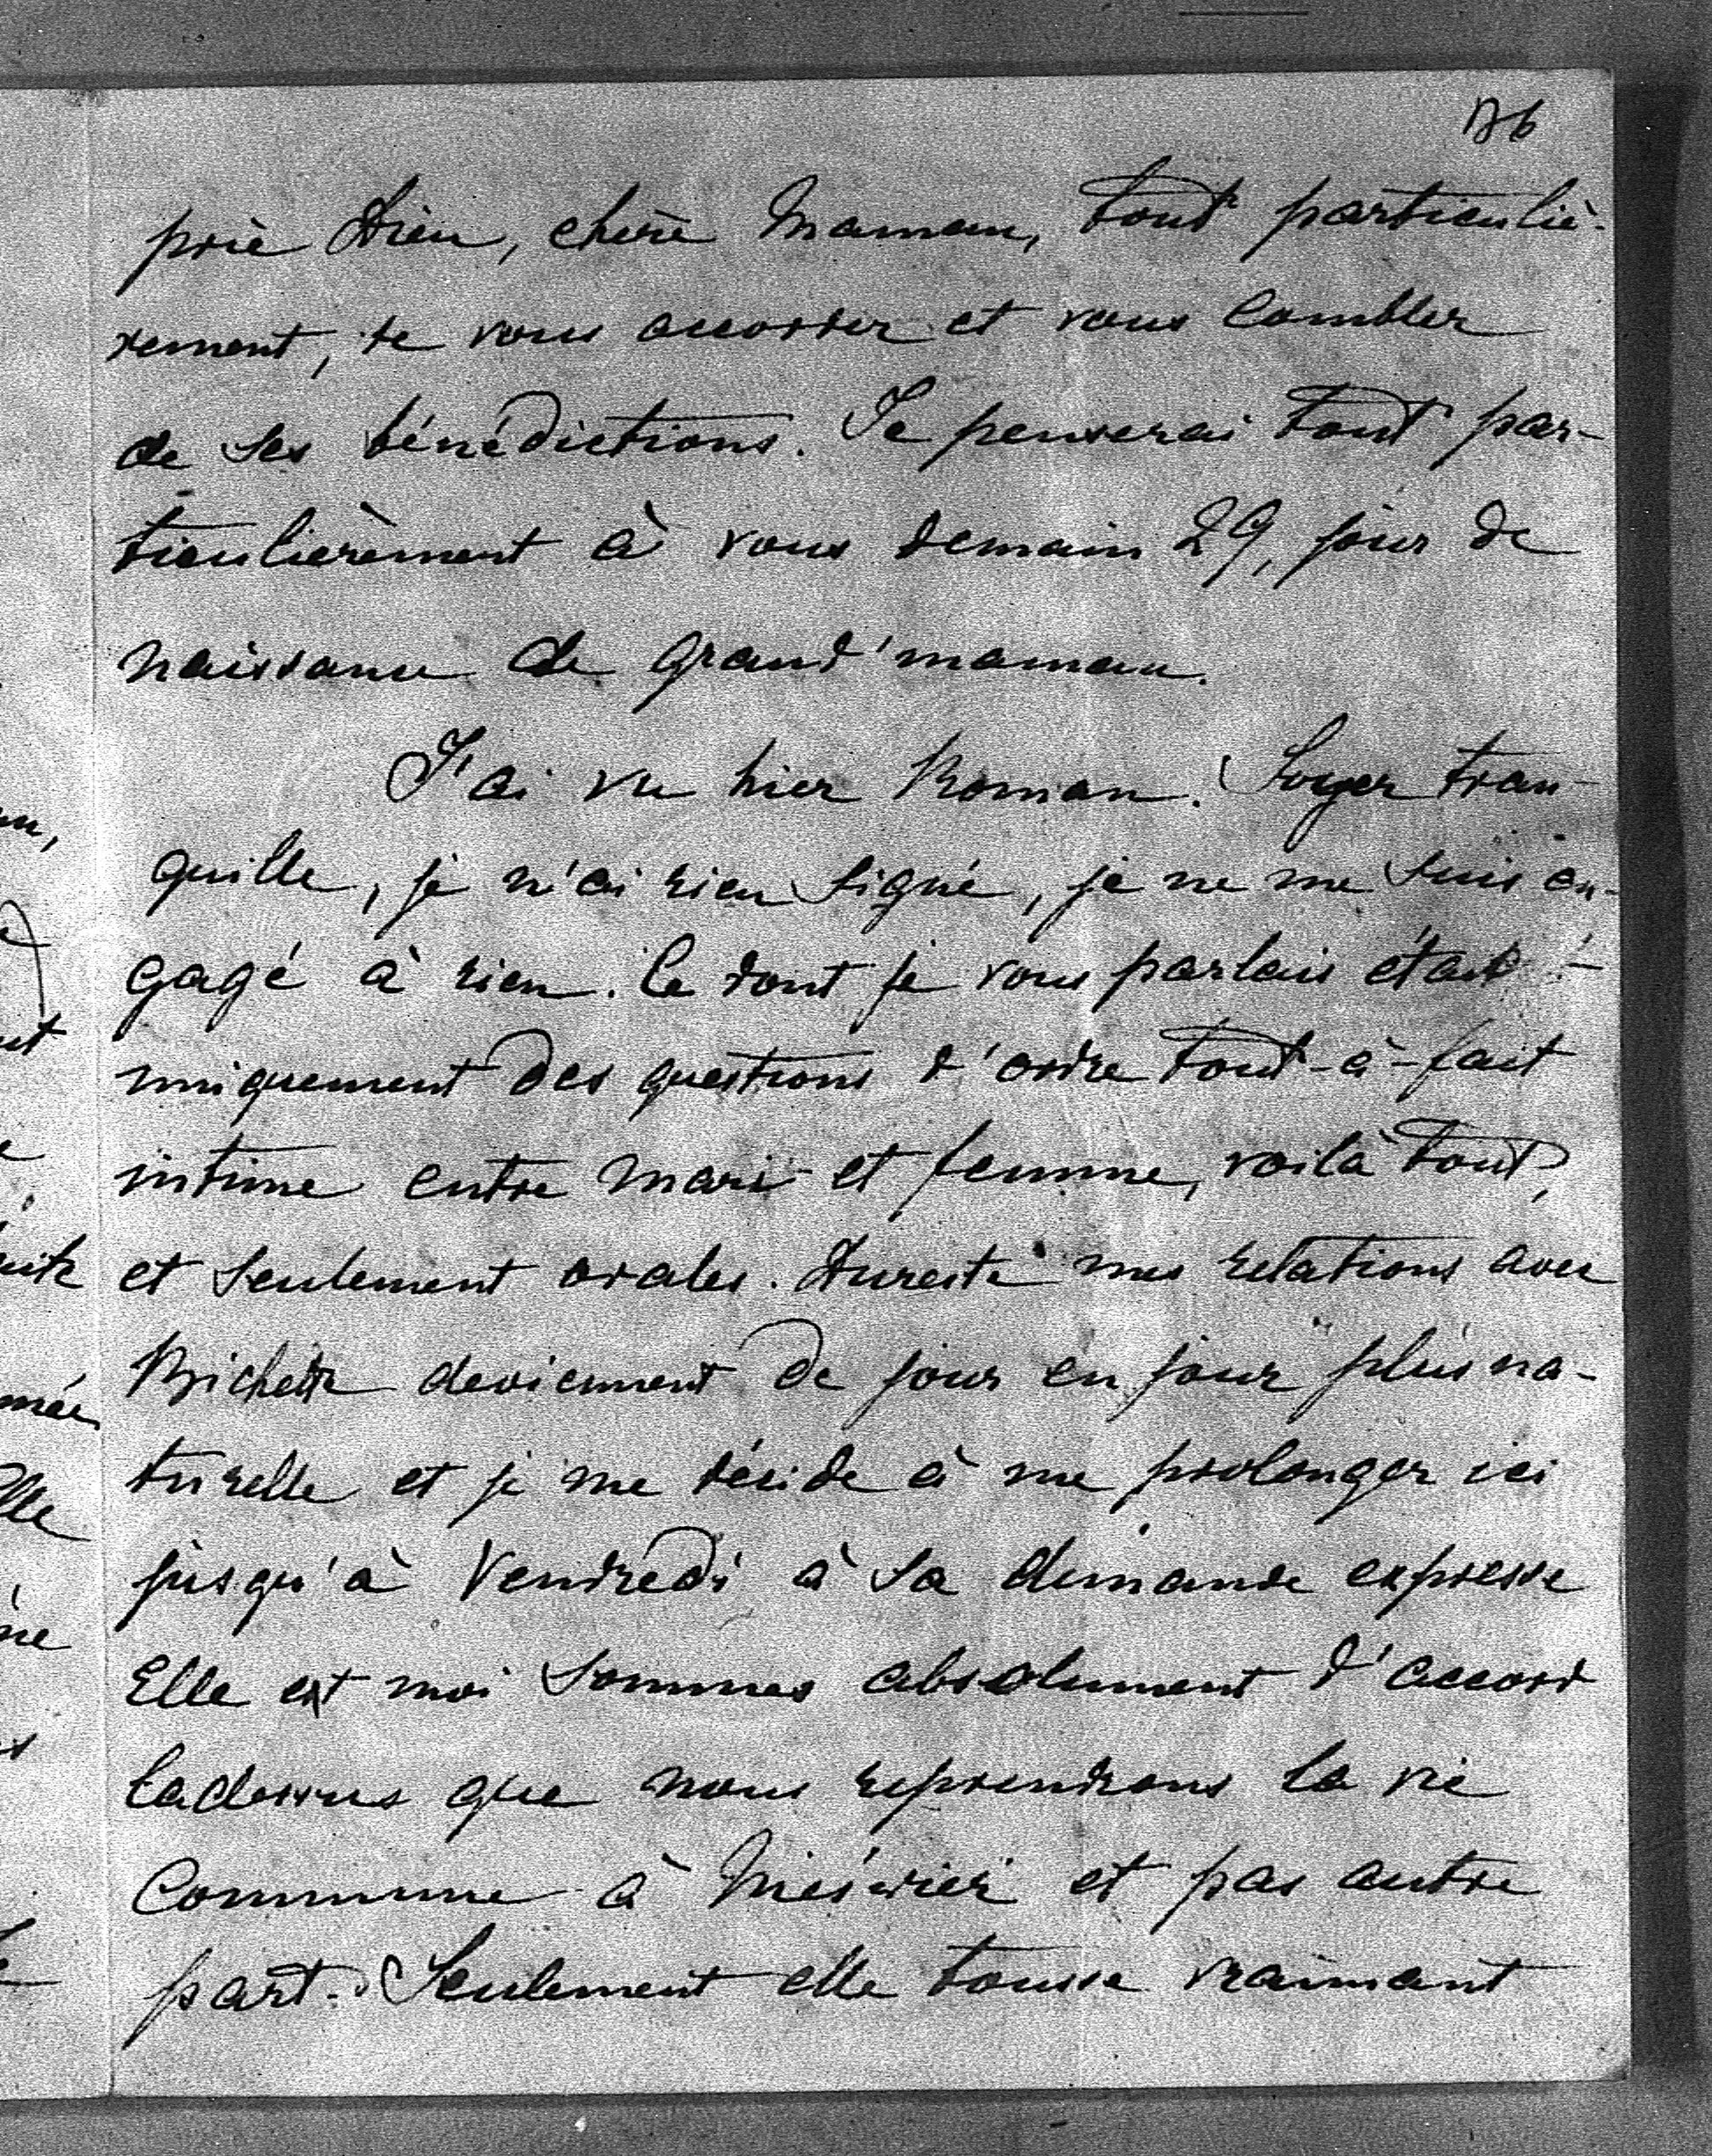 prie Dieu, chère Maman, tout particuliè-
rement, de vous accorder et vous combler
de ses bénédictions. Je penserai tout par-
ticulièrement à vous demain 29, jour de
naissance de grand'maman.
J'ai vu hier Roman. Soyez tran-
quille, je n'ai rien signé, je ne me suis en-
gagé à rien. Ce dont je vous parlais était
uniquement des questions d'ordre tout-à-fait
intime entre mari et femme, voilà tout,
et seulement orales. Dureste mes relations avec
Bichette deviennent de jour en jour plus na-
turelle et je me décide à me prolonger ici
jusqu'à Vendredi à sa demande expresse
Elle et moi sommes absolument d'accord
ladessus que nous reprendrons la vie
Commune à et pas autre
part. Seulement elle tousse vraimant